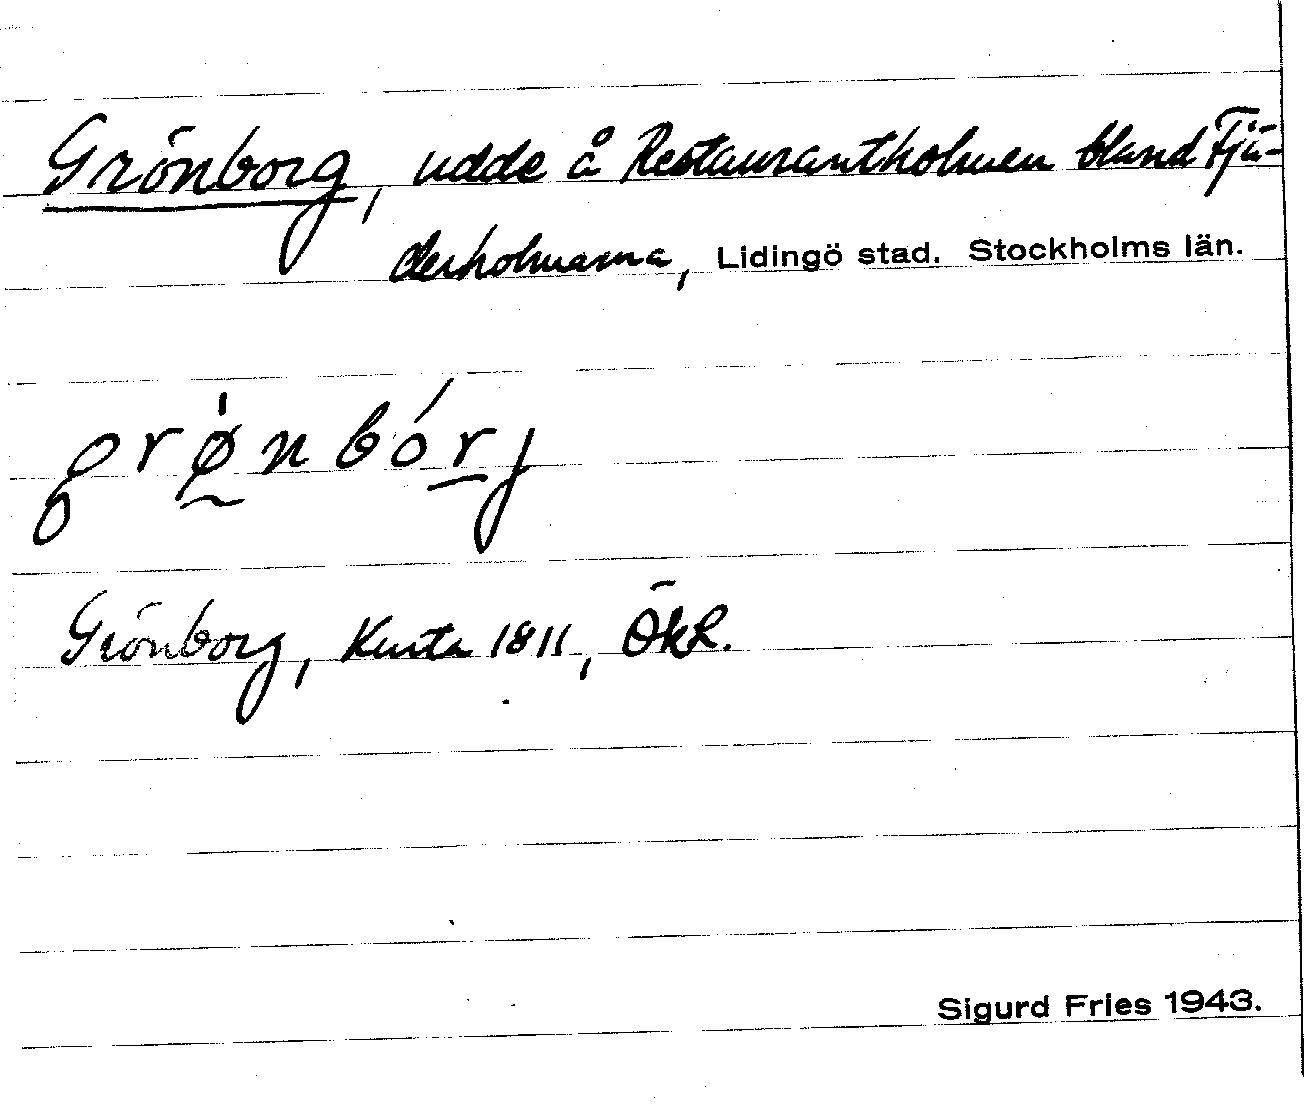 Grönborg, udde å Restaurantholmen bland Fjä-
derholmarna, Lidingö stad. Stockholms län.
grø̀nbórj
Grönborg, Karta 1811, ÖkR.
Sigurd Fries 1943.